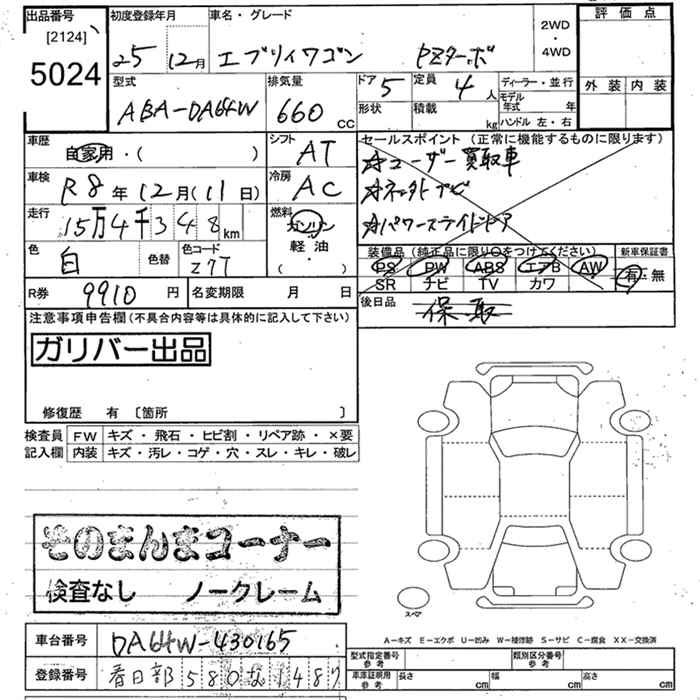 出品番号
[2124]
5024
初度登録年月
25 12月
車名・グレード
エブリィワゴン PZターボ
2WD
・
4WD
評価点
外装 内装
型式
ABA-DA64W
排気量
660 CC
ドア 5
形状
定員 4人
積載 kg
ディーラー・並行
モデル年式 年
ハンドル 左・右
車歴
自家用・( )
シフト AT
車検
R8年12月(11日)
冷房 AC
走行
15万4千348km
燃料
ガソリン
軽・油
( )
色 白 色替
色コード Z7T
セールスポイント(正常に機能するものに限ります)
☆ユーザー買取車
☆パワースライドドア
装備品(純正品に限り○をつけてください)
PS PW ABS エアB AW
SR ナビ TV カワ
新車保証書
有・無
R券 9910 円
名変期限 月 日
後日品
保 取
注意事項申告欄(不具合内容等は具体的に記入して下さい)
ガリバー出品
修復歴 有 〔箇所 〕
検査員記入欄
FW キズ・飛石・ヒビ割・リペア跡・×要
内装 キズ・汚レ・コゲ・穴・スレ・キレ・破レ
そのまんまコーナー
検査なし ノークレーム
車台番号 DA64W-430165
登録番号 春日部580な1487
スペア
A-キズ E-エクボ U-凹み W-補修跡 S-サビ C-腐食 XX-交換済
型式指定番号 参考
類別区分番号 参考
車庫証明用 参考 長さ cm 幅 cm 高さ cm